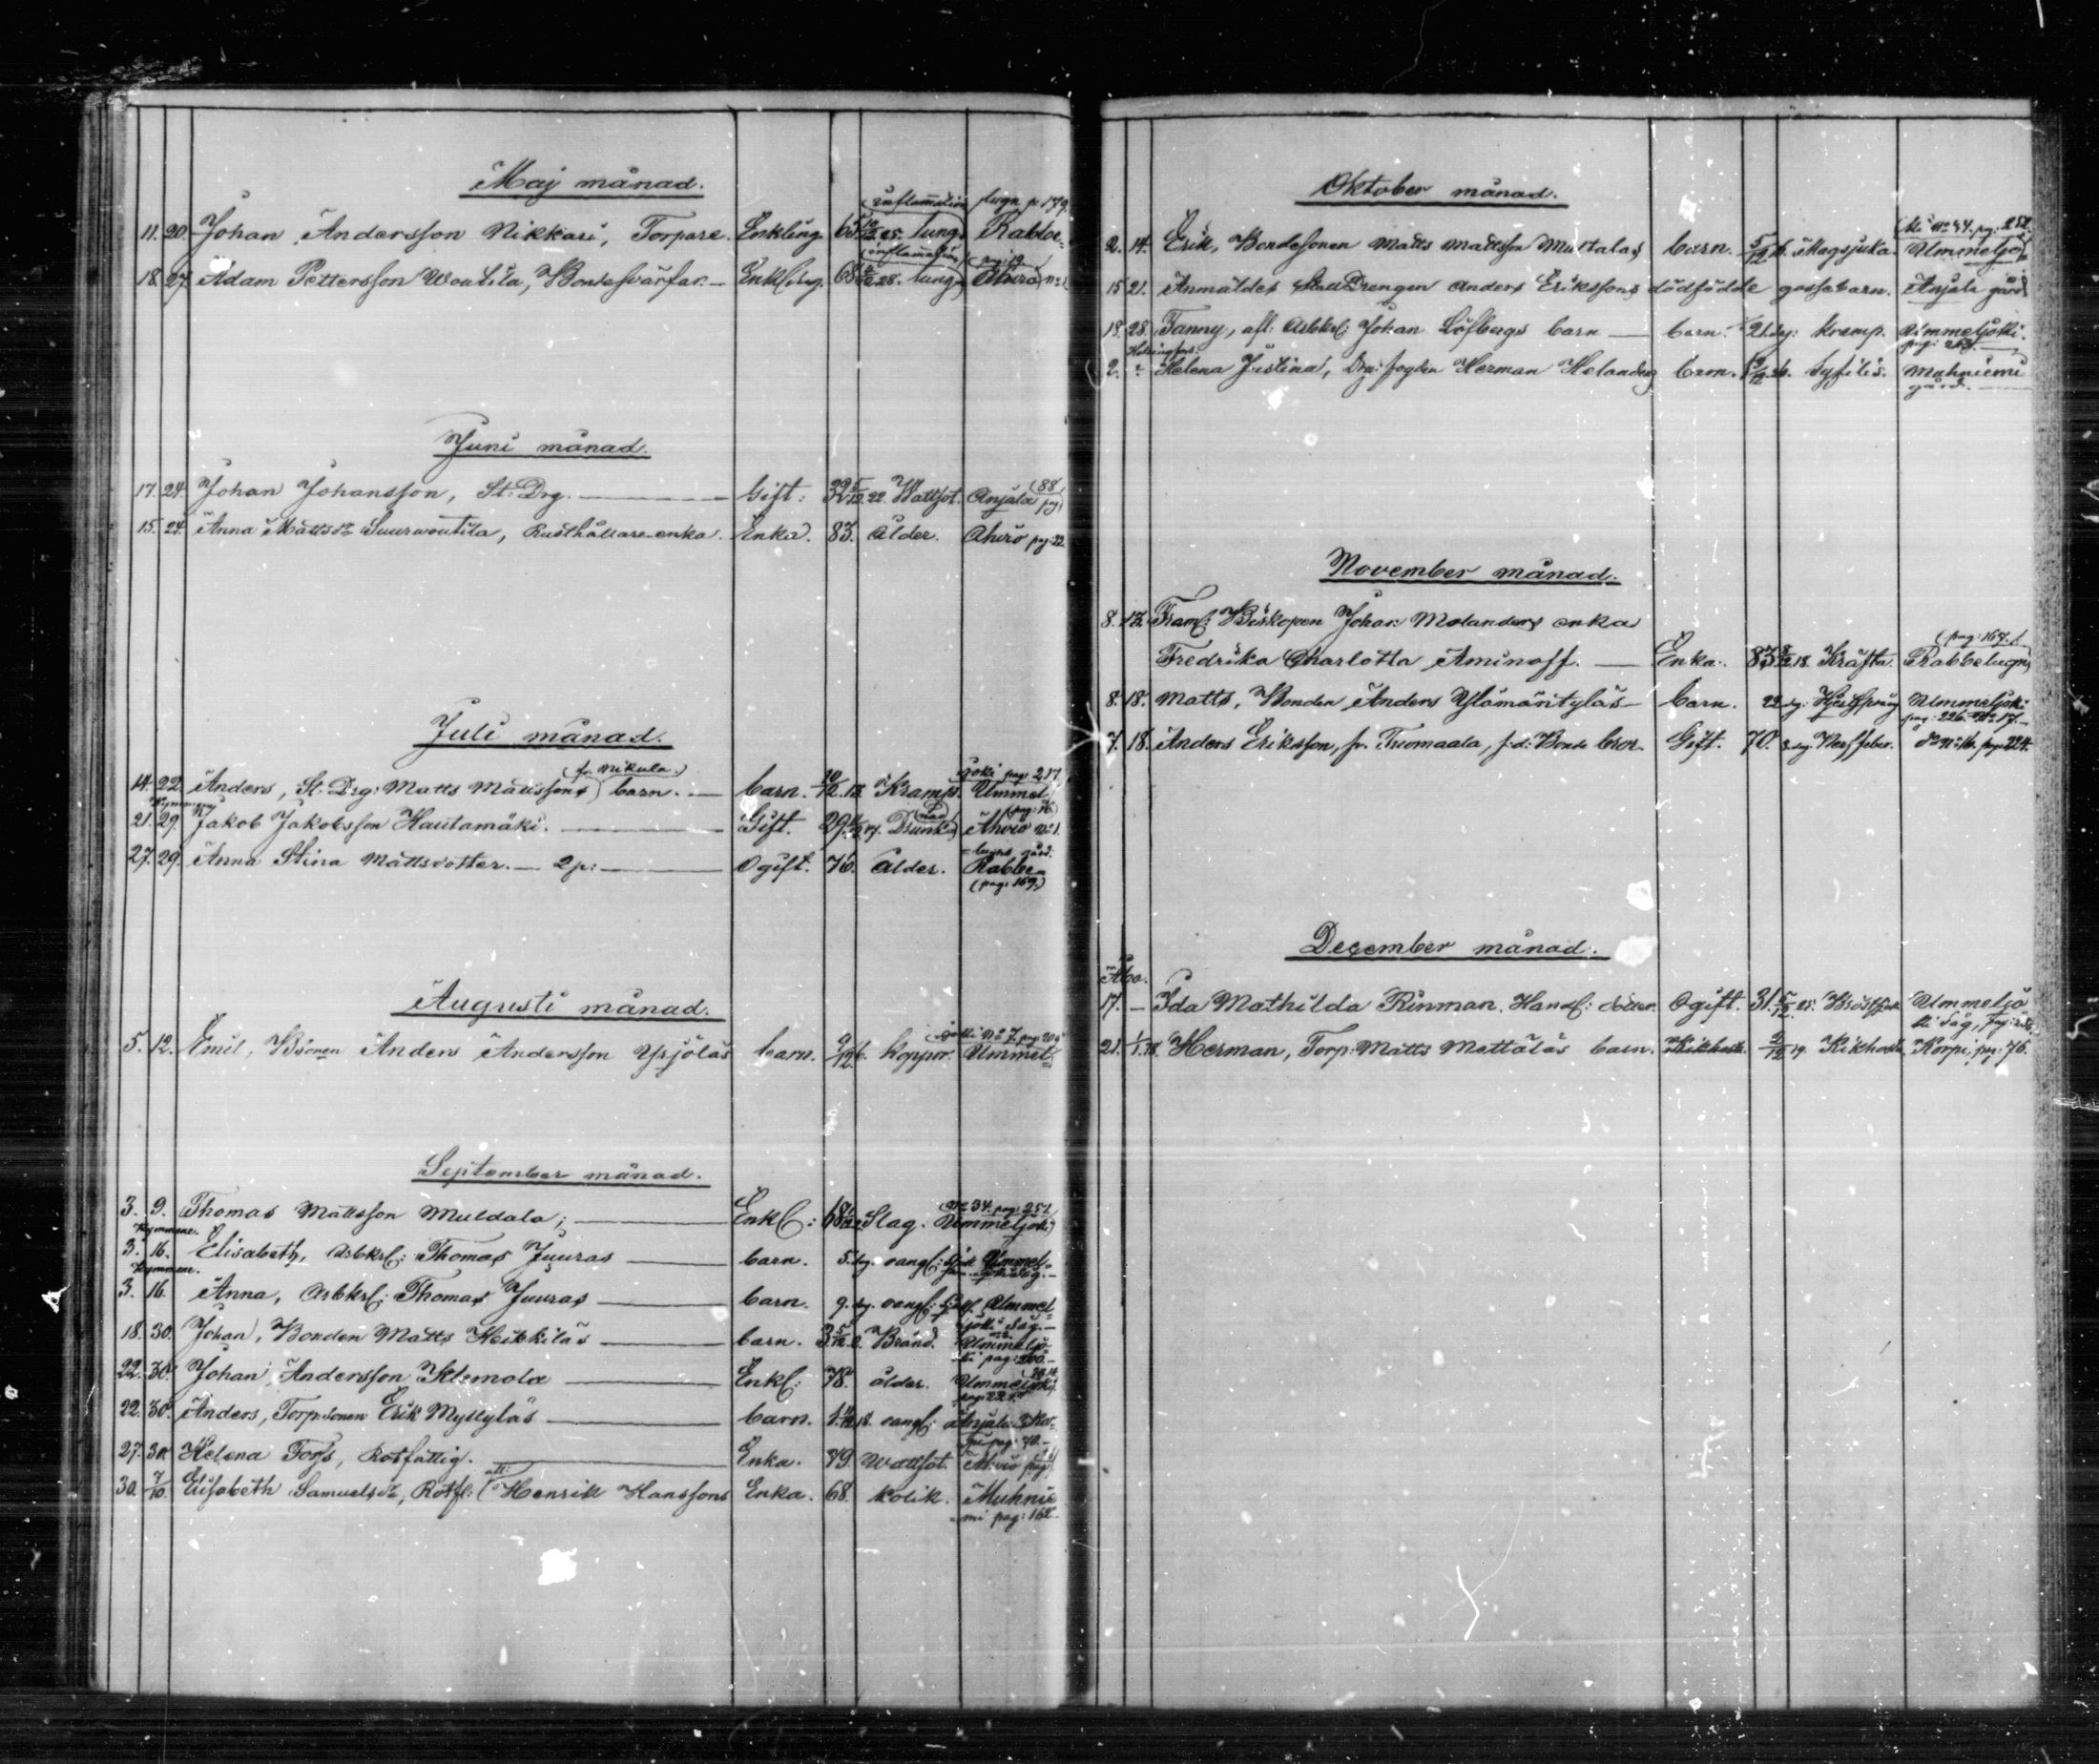 Maj månad.
11. 20. Johan Andersson Nikkari, Torpare. Enkling. 65 10/12 25. lung inflammation Rabbe= lugn p. 179.
18. 27. Adam Pettersson Woutila, Bondesvärfar. — Enkling. 68 28. lung inflammation Ahvio pag: 19.
Juni månad.
17. 24. Johan Johansson, St: Drg. — Gift. 32 5/12 22. Wattsot. Anjala (88 pag)
15. 24. Anna Mattsdr Suurwoutila, Rusthållare-enka. Enka. 83. ålder. Ahvio pag: 22
Juli månad.
14. 22. Anders, St: Drg: Matts Mattssons (fr. Nikula.) barn. — barn. 10/12 18. Kramp. Ummel= joki pag: 217
Kymmene
21. 29. Jakob Jakobsson Hautamäki. — Gift. 29. Drunk= nad Ahvio No 1. (pag: 16.)
27. 29. Anna Stina Mattsdotter. — 2 p: — Ogift. 76. ålder. Rabbe= lugns gård. (pag: 169.)
Augusti månad.
5. 12. Emil, Bsonen Anders Andersson Yrjöläs barn. 9/12 6. koppor. Ummel= joki No 7. pag: 209
September månad.
3. 9. Thomas Mattsson Muldala; — Enkl: 68 Slag. Ummeljoki No 34. pag: 251.
Kymmene.
3. 16. Elisabeth, Arbkrl: Thomas Juuras — barn. 5. dg. oangf: Ummel= joki såg. —
Kymmene.
3. 16. Anna, Arbkrl: Thomas Juuras — barn. 9. dg. oangf: Ummel= joki såg. —
18. 30. Johan, Bonden Matts Heikkiläs — barn. 3 5/12 2. Bränd. Ummeljo= ki pag: 200. —
22. 30. Johan Andersson Klemola — Enkl: 78. ålder. Ummeljoki pag: 221.
22. 30. Anders, Torp.sonen Erik Myllyläs — barn. 1. 11/12 18. oangf: Anjala Kor= pi pag: 70. —
27. 30. Helena Fors, Rotfattig. — Enka. 79. Wattsot. Ahvio pag
30. 7/10. Elisabeth Samuelsdr, Rotfl: (Henrik Hanssons Enka. 68. Kolik. Muhnie= mi pag: 162. —
Oktober månad.
2. 14. Erik, Bondesonen Matts Mattsson Multalas barn. 5/12 16. Magsjuka. Ummeljo= ki No 34. pag: 252.
15 21. Anmäldes StallDrengen Anders Erikssons dödfödde gossebarn. Anjala gård
18. 28. Fanny, afl. Arbkrl: Johan Löfbergs barn — barn. 21. dg: kramp. Ummeljoki. pag: 263. —
Helsingfors.
2. " Helena Justina, Drg: fogden Herman Helanders barn. Syfilis. Muhniemi gård. —
November månad.
8. 13. Framl: Biskopen Johan Molanders enka
Fredrika Charlotta Aminoff. — Enka. 83 18. Kräfta. Rabbelugn (pag: 167.)
8. 18. Matts, Bonden Anders Ylömäntyläs — barn. 22 dg: Ummeljoki pag: 226. No 17. —
7. 18. Anders Eriksson, fr. Tuomaala, f.d. Bonde bror. Gift. 70. 3. dg. Nerffeber. do No 16. pag: 224.
December månad.
Åbo.
17. — Ida Mathilda Rinman, Handl: dotter. Ogift. 31 5/12 25. Bröstsjuk. Ummeljo= ki såg,
21. 1/1.78. Herman, Torp: Matts Mattäläs barn. Kikhosta. 2/12 19. Kikhosta Korpi, pag: 76.